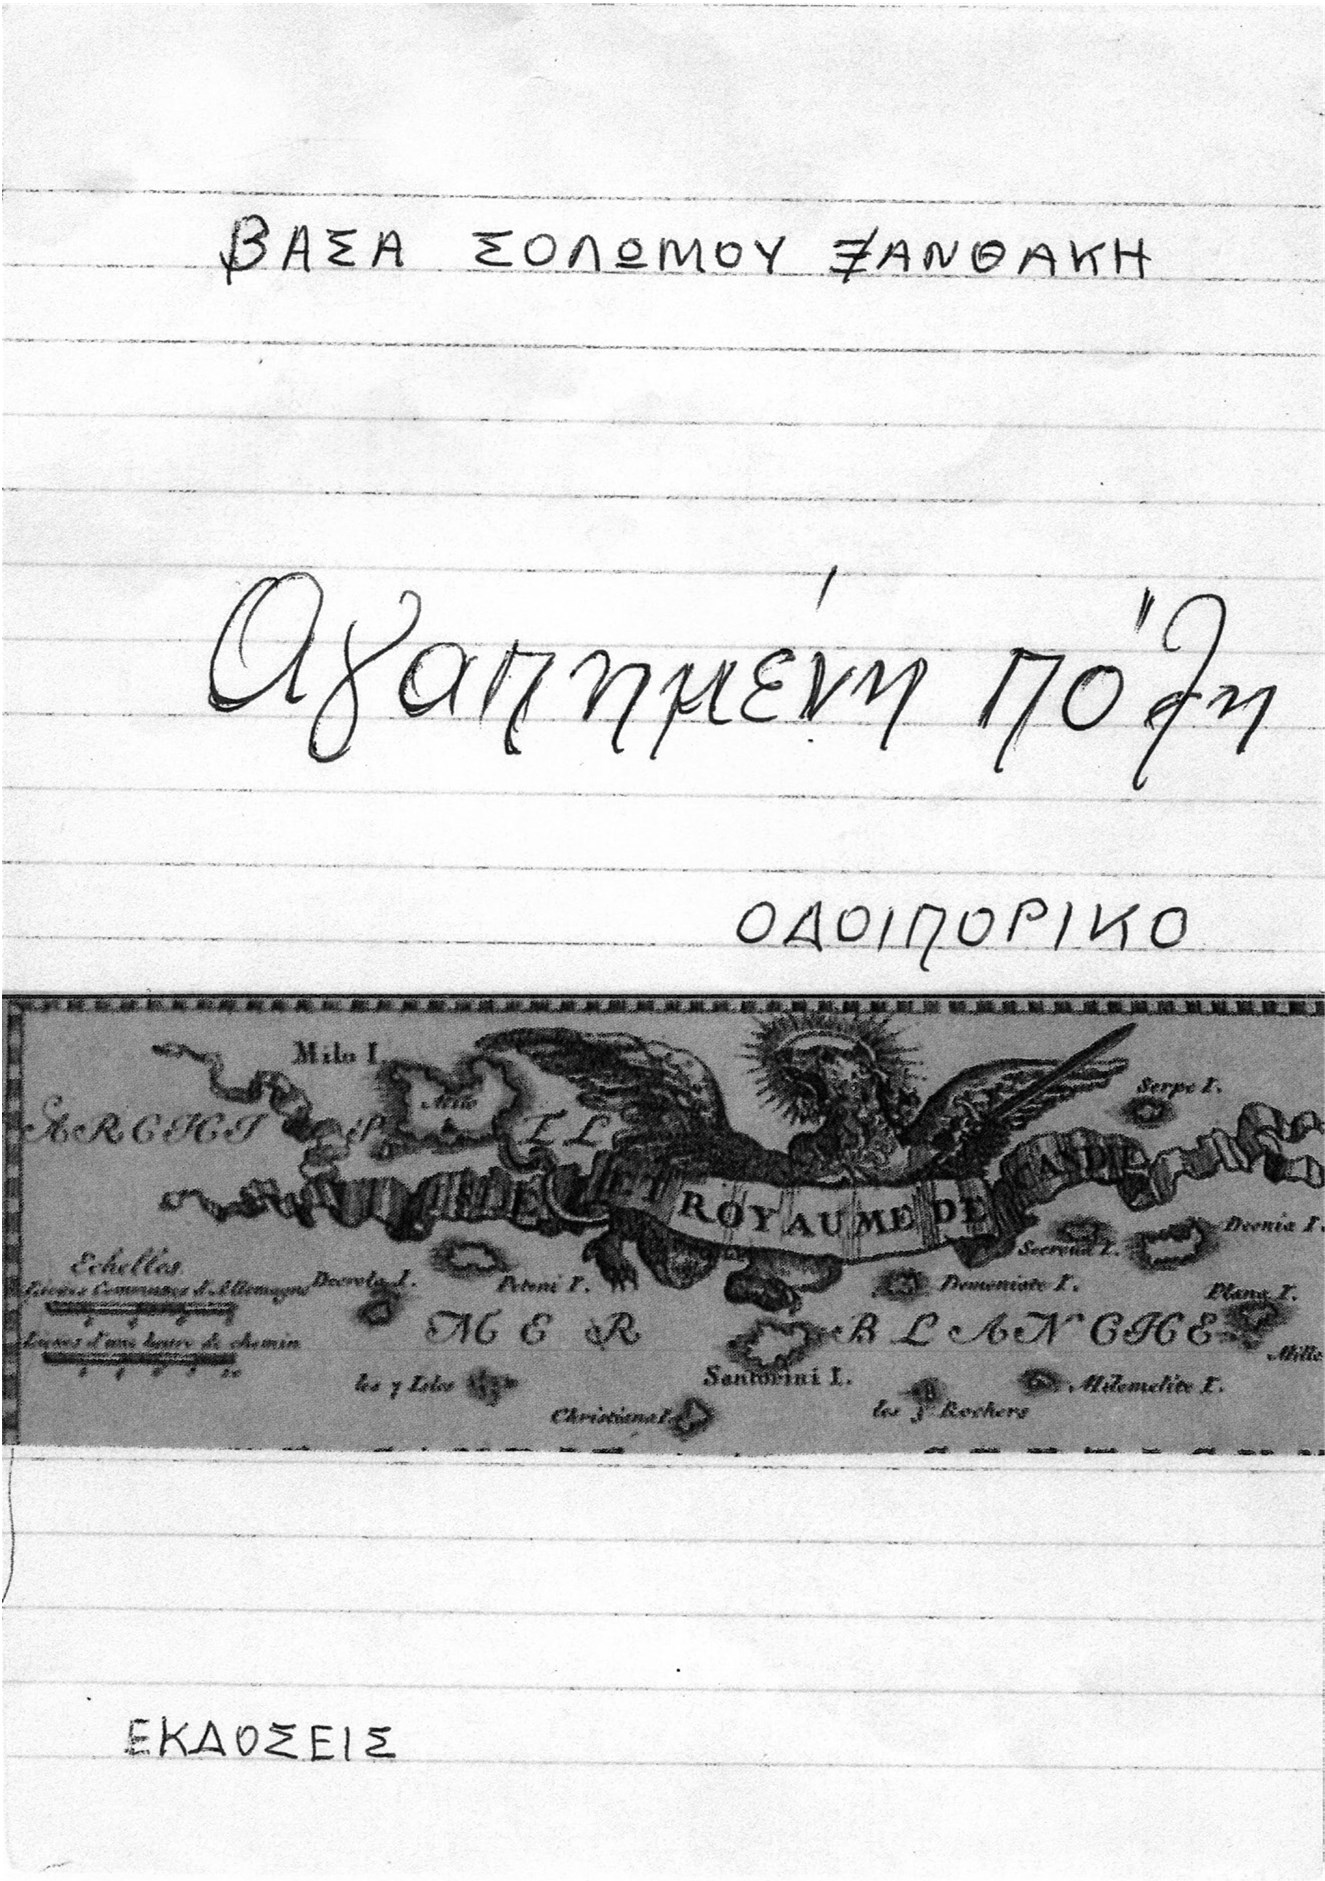 ΒΑΣΑ ΣΟΛΩΜΟΥ ΞΑΝΘΑΚΗ
Αγαπημένη πόλη
ΟΔΟΙΠΟΡΙΚΟ
Milo I.
Milo
Serpe I.
ARCHI P
ISLE ET ROYAUME DE CANDIE
Echelles
Lieues Communes d'Allemagne
Lieues d'une heure de chemin
Decrola I.
Peteni I.
Secrena I.
Decnia I.
Demeniate I.
Plana I.
MER BLANCHE
Santorini I.
les 7 Isles
Christiana I.
les 3 Rochers
Milomelite I.
Mille
ΕΚΔΟΣΕΙΣ